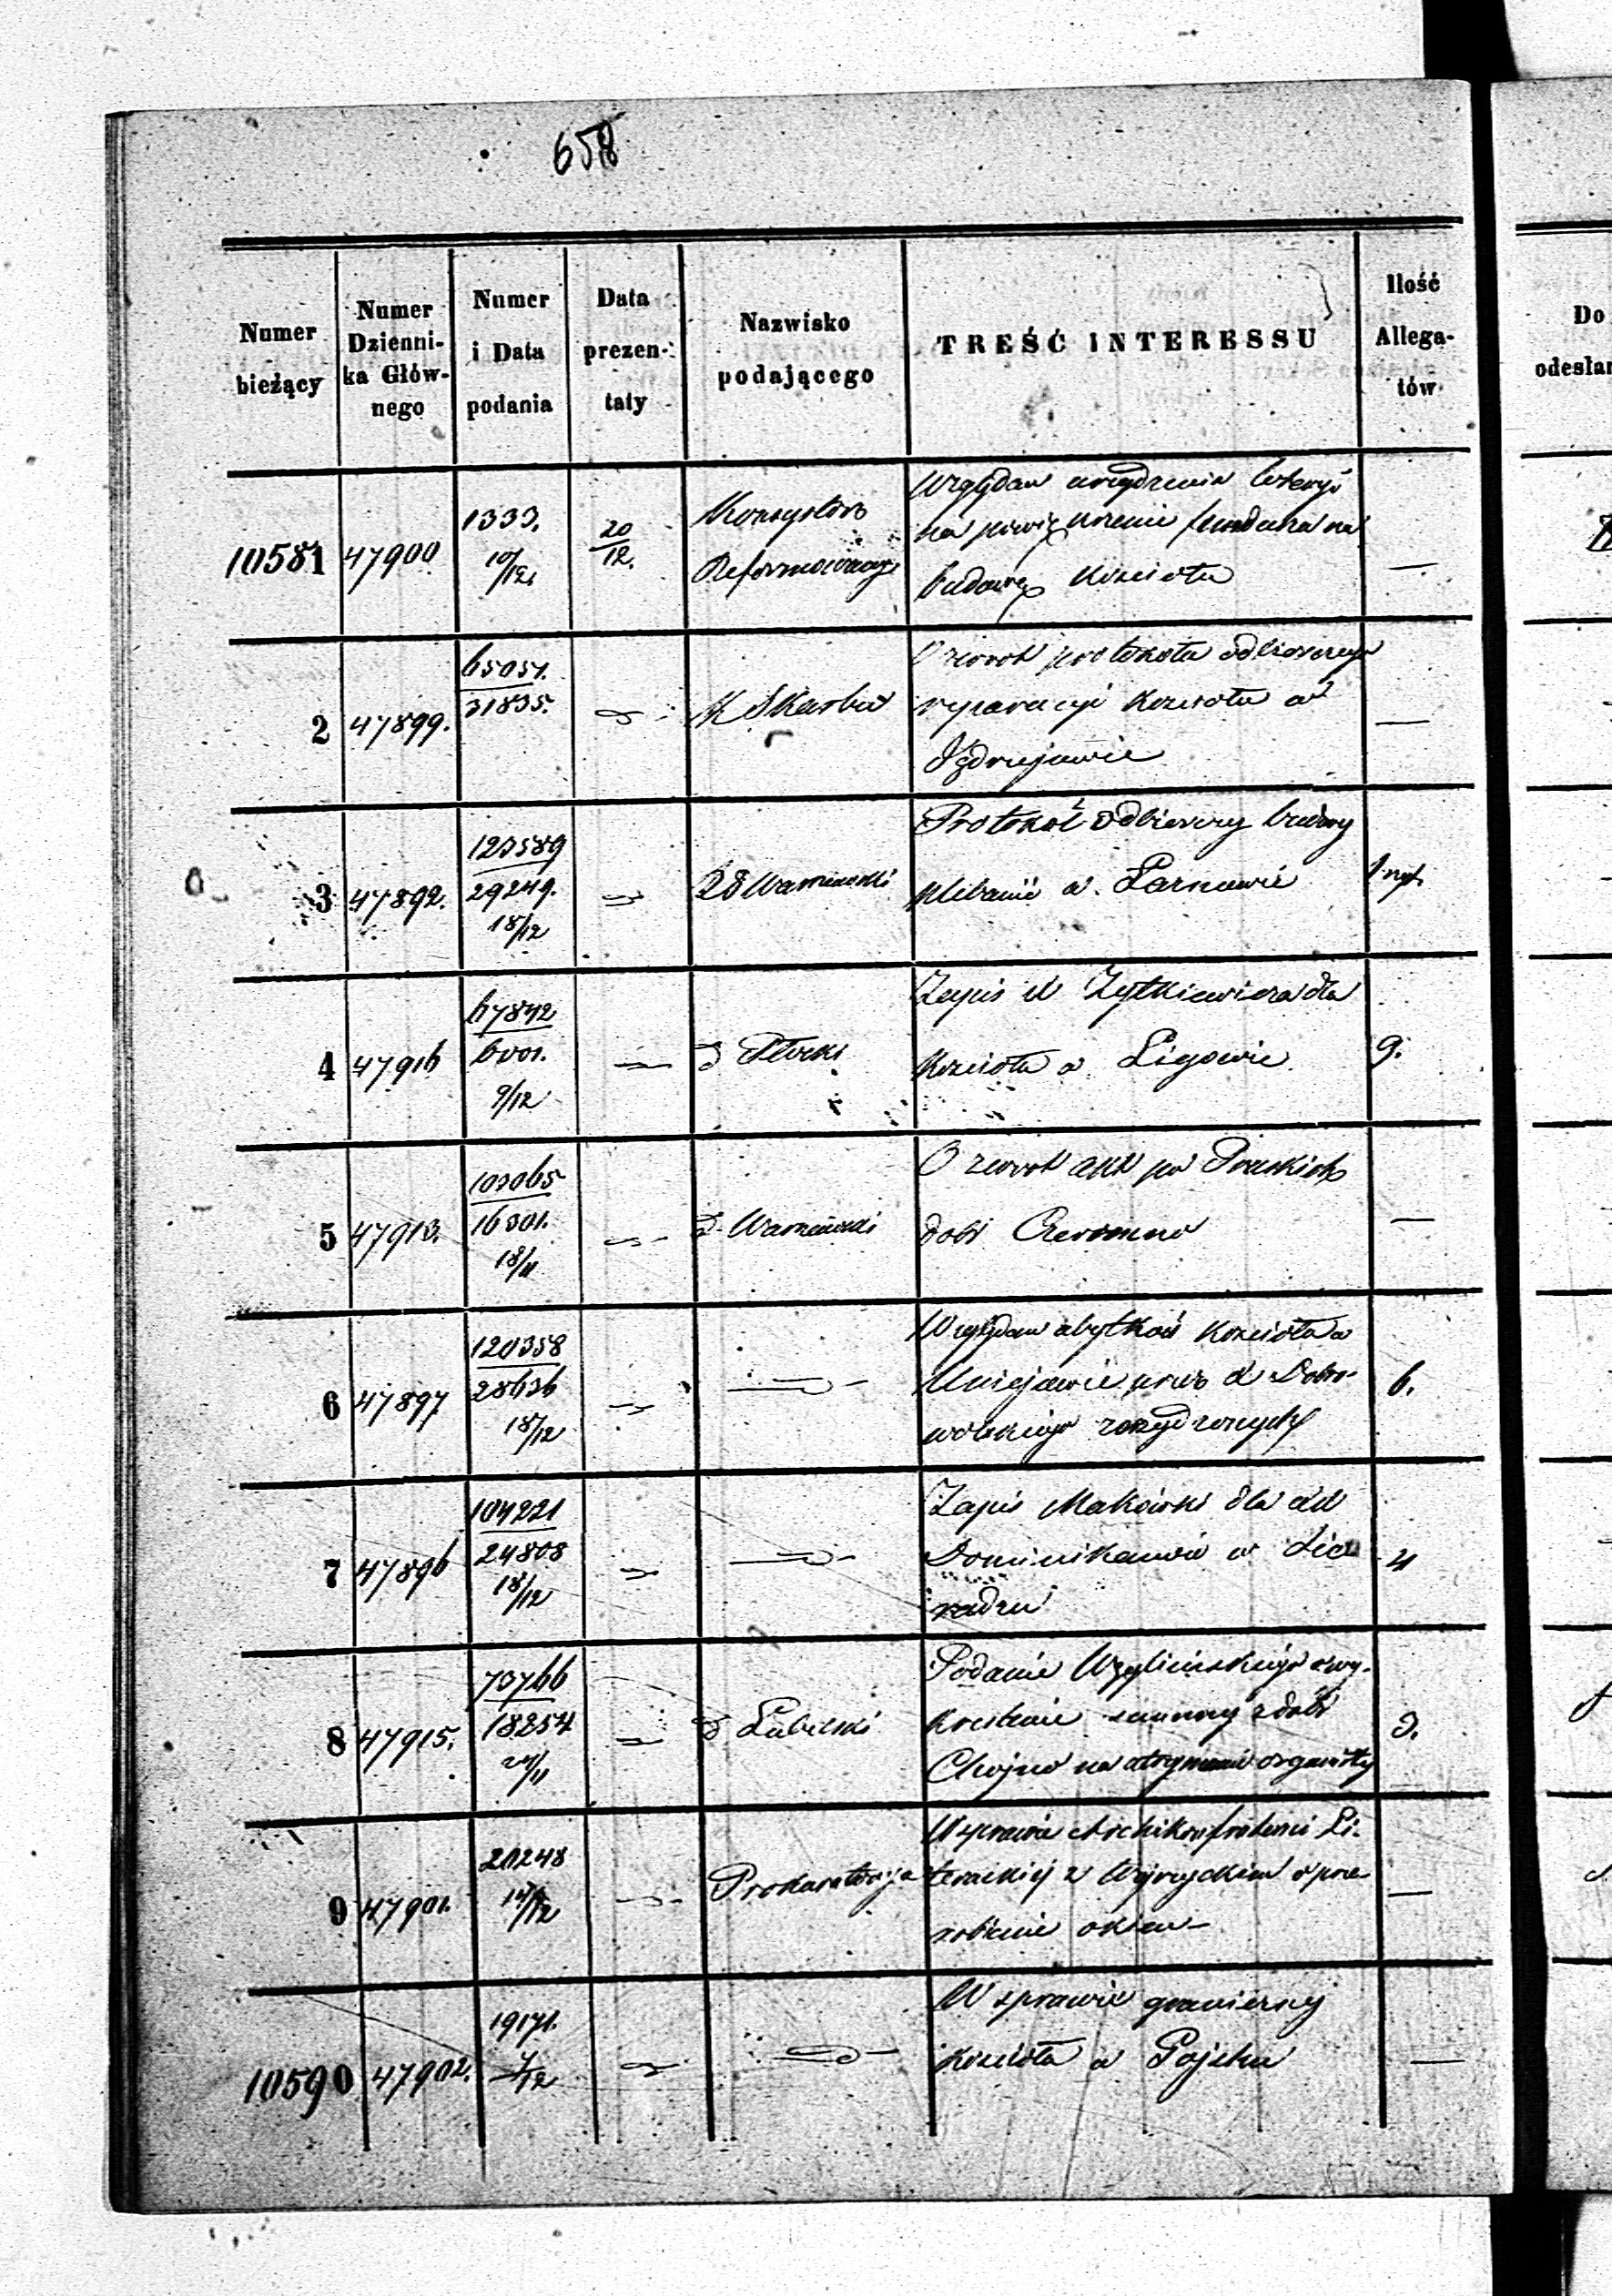 658
Numer bieżący
Numer Dzienni- ka Głów- nego
Numer i Data podania
Data prezen- taty
Nazwisko podającego
TREŚĆ INTERESSU
Ilość Allega- tów
Do
odesłan
10581 47900 1333. 10/12. 20/12. Konsystorz Reformowany
Względem urządzenia loteryi
na powiększenie funduszu na
budowę Kościoła —
2 47899. 65051. 31835. K Skarbu
O zwrot protokołu odbiorczego
reparacyi Kościoła w
—
3 47892. 29249. 18/12 Warszawski
Protokół odbiorczy budowy
plebanii w
4 47916 67842 6001. 9/12 Płocki
Zapis X Żytkiewicza dla
Kościoła w Ligowie 9.
5 47913. 103065 16301. 18/11 Warszawski
O zwrot akt po Pruskich
dóbr Czersinno —
6 47897 120358 28636 18/12
Względem użytków Kościoła w
Uniejowie przez X Dobro-
wolskiego zarządzonych 6.
7 47896 104221 24808 18/12
Zapis Makowski dla XX
Dominikanów w Sie
radzu 4
8 47915. 73766 18254 24/11 Lubelski
Podanie Węglińskiego o wy-
kreślenie summy z dóbr
Chojno na utrzymanie organisty 3.
9 47901. 20248 14/12 Prokuratorija
W sprawie Archikonfraternii Li-
terackiej z o prze-
robienie okien —
10590 47902. 19171. 7/12
W sprawie granicznej
kościoła w —